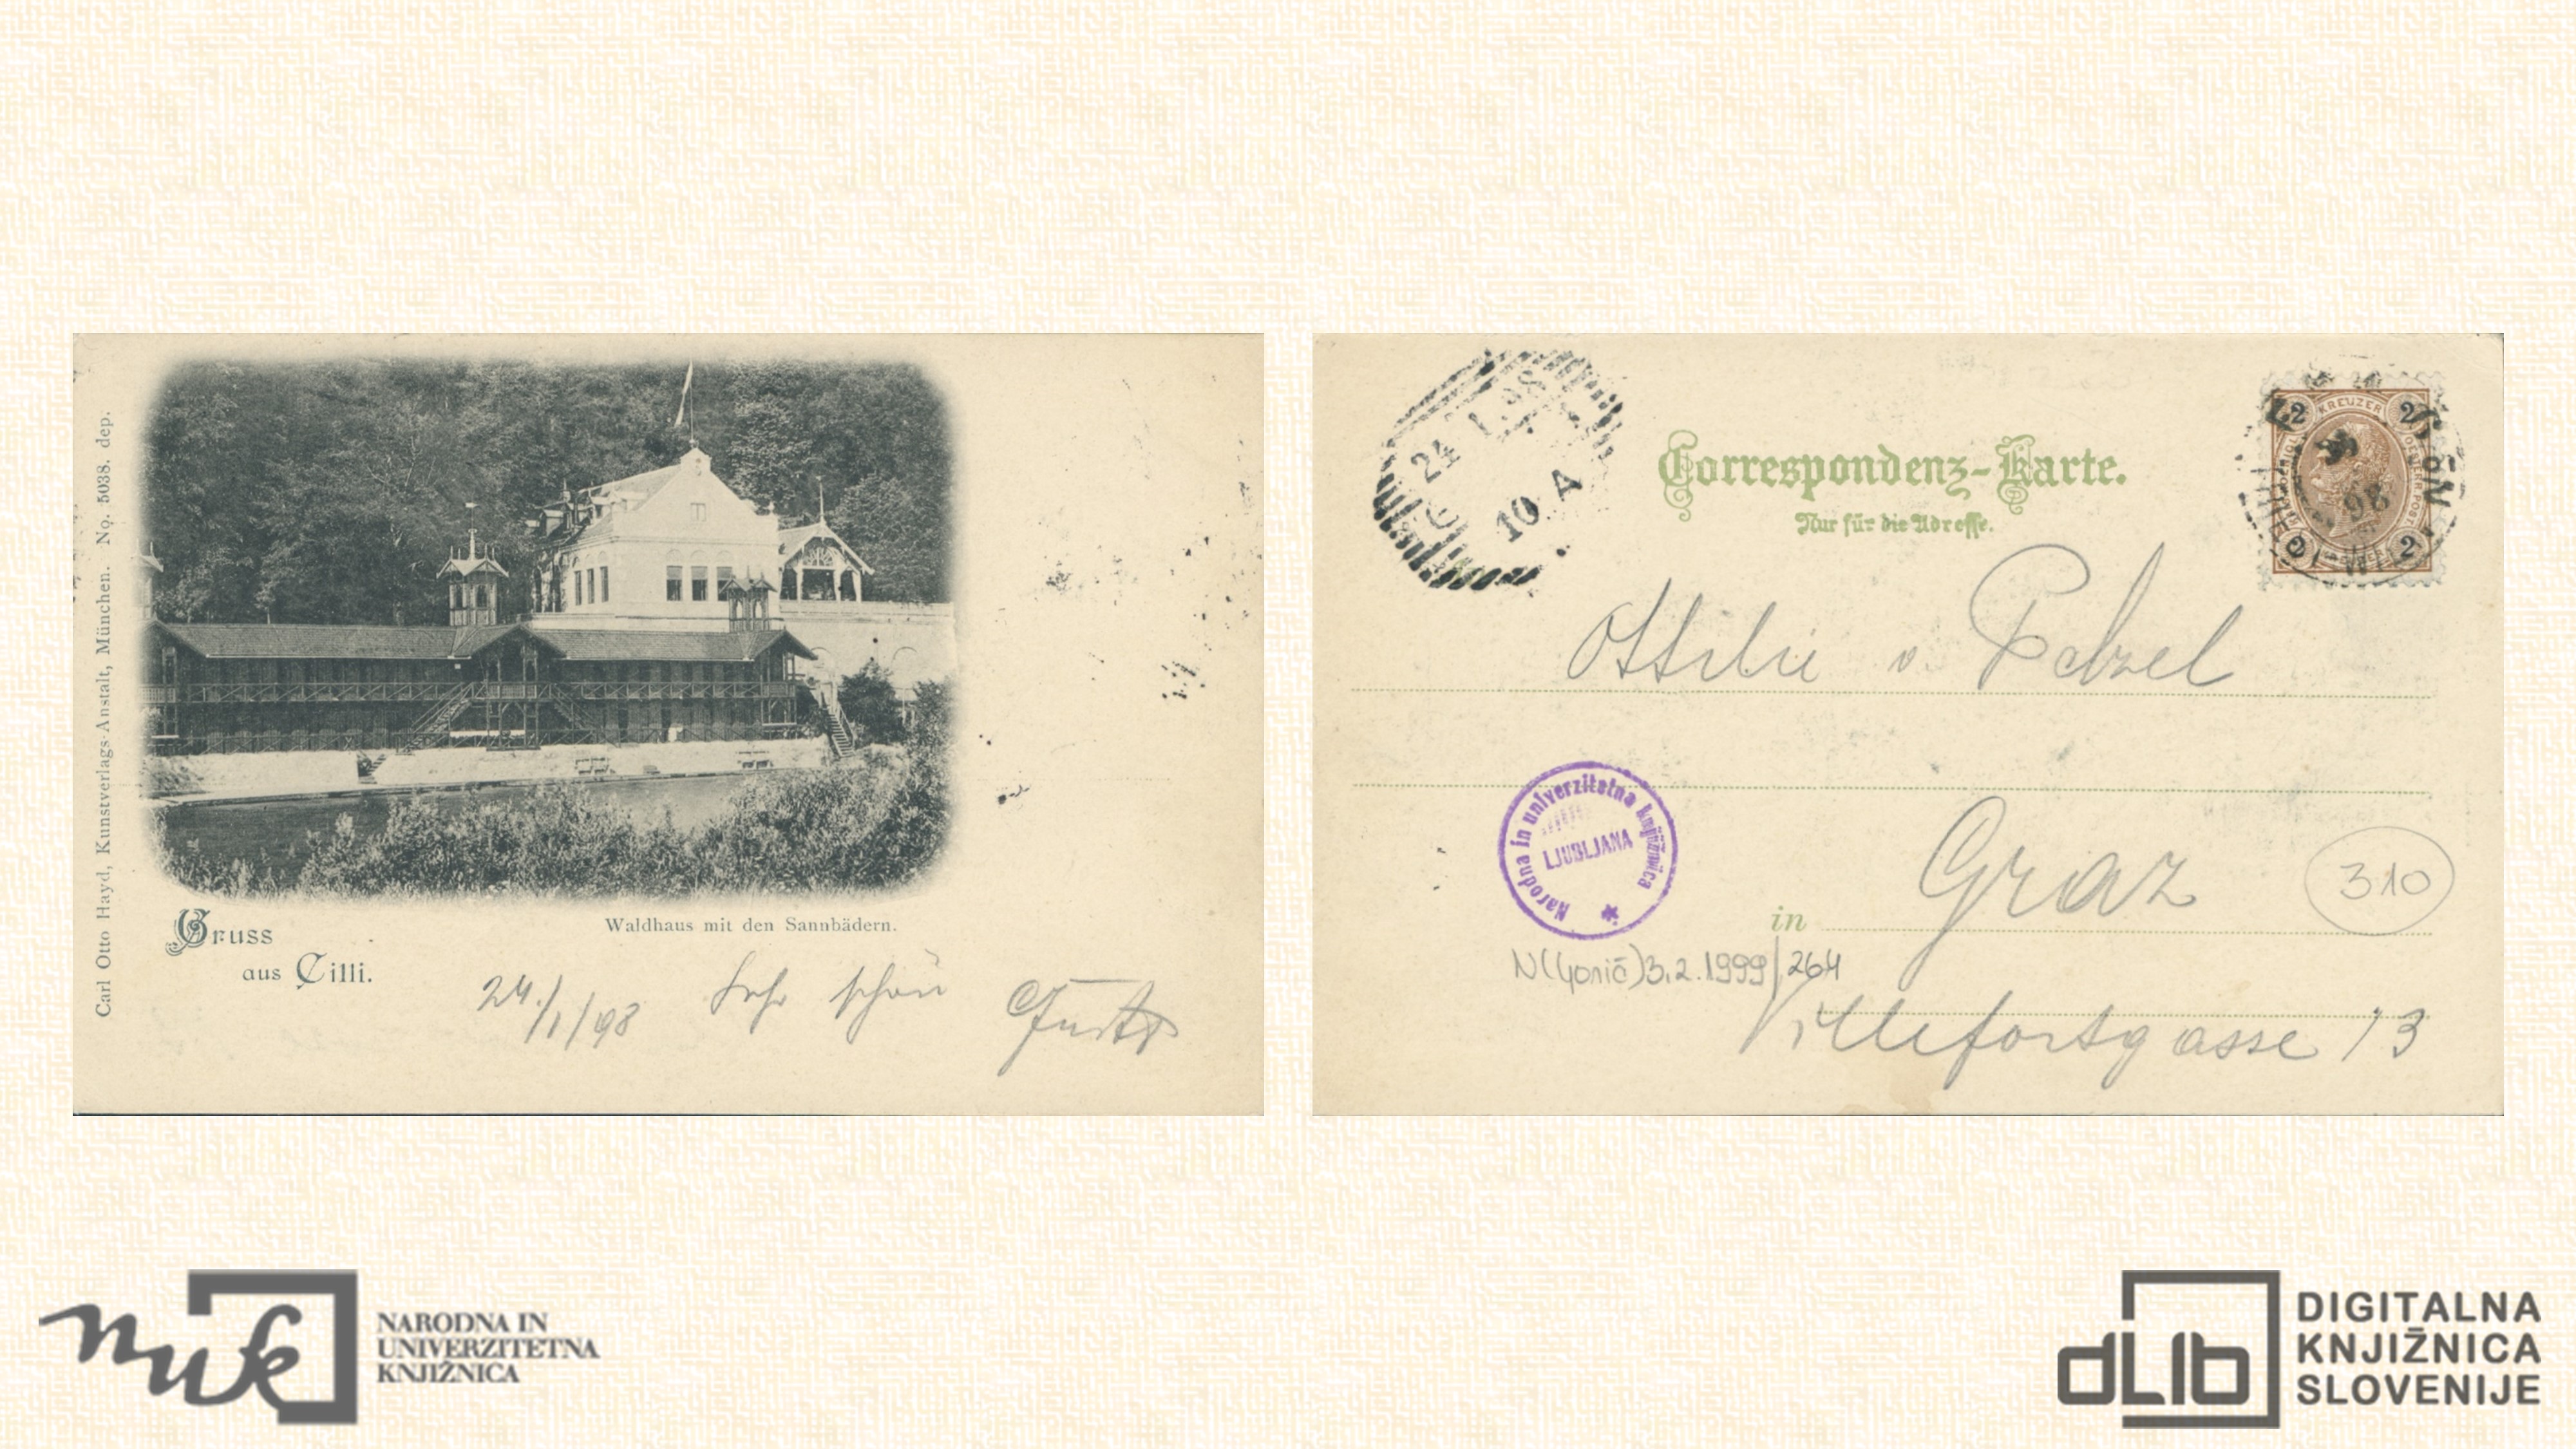 Carl Otto Hayd, Kunstverlags-Anstalt, München. No. 5038. dep.
Gruss
aus Cilli.
Waldhaus mit den Sannbädern.
24./1/98 Sehr schön
24 1 98
10 A
Correspondenz-Karte.
Nur für die Adresse.
2 KREUZER 2
2 2
98
Ottilie v.
Narodna in univerzitetna knjižnica
LJUBLJANA
in Graz
310
3.2.1999/264
Villefortgasse 13
nuk
NARODNA IN
UNIVERZITETNA
KNJIŽNICA
dLib
DIGITALNA
KNJIŽNICA
SLOVENIJE